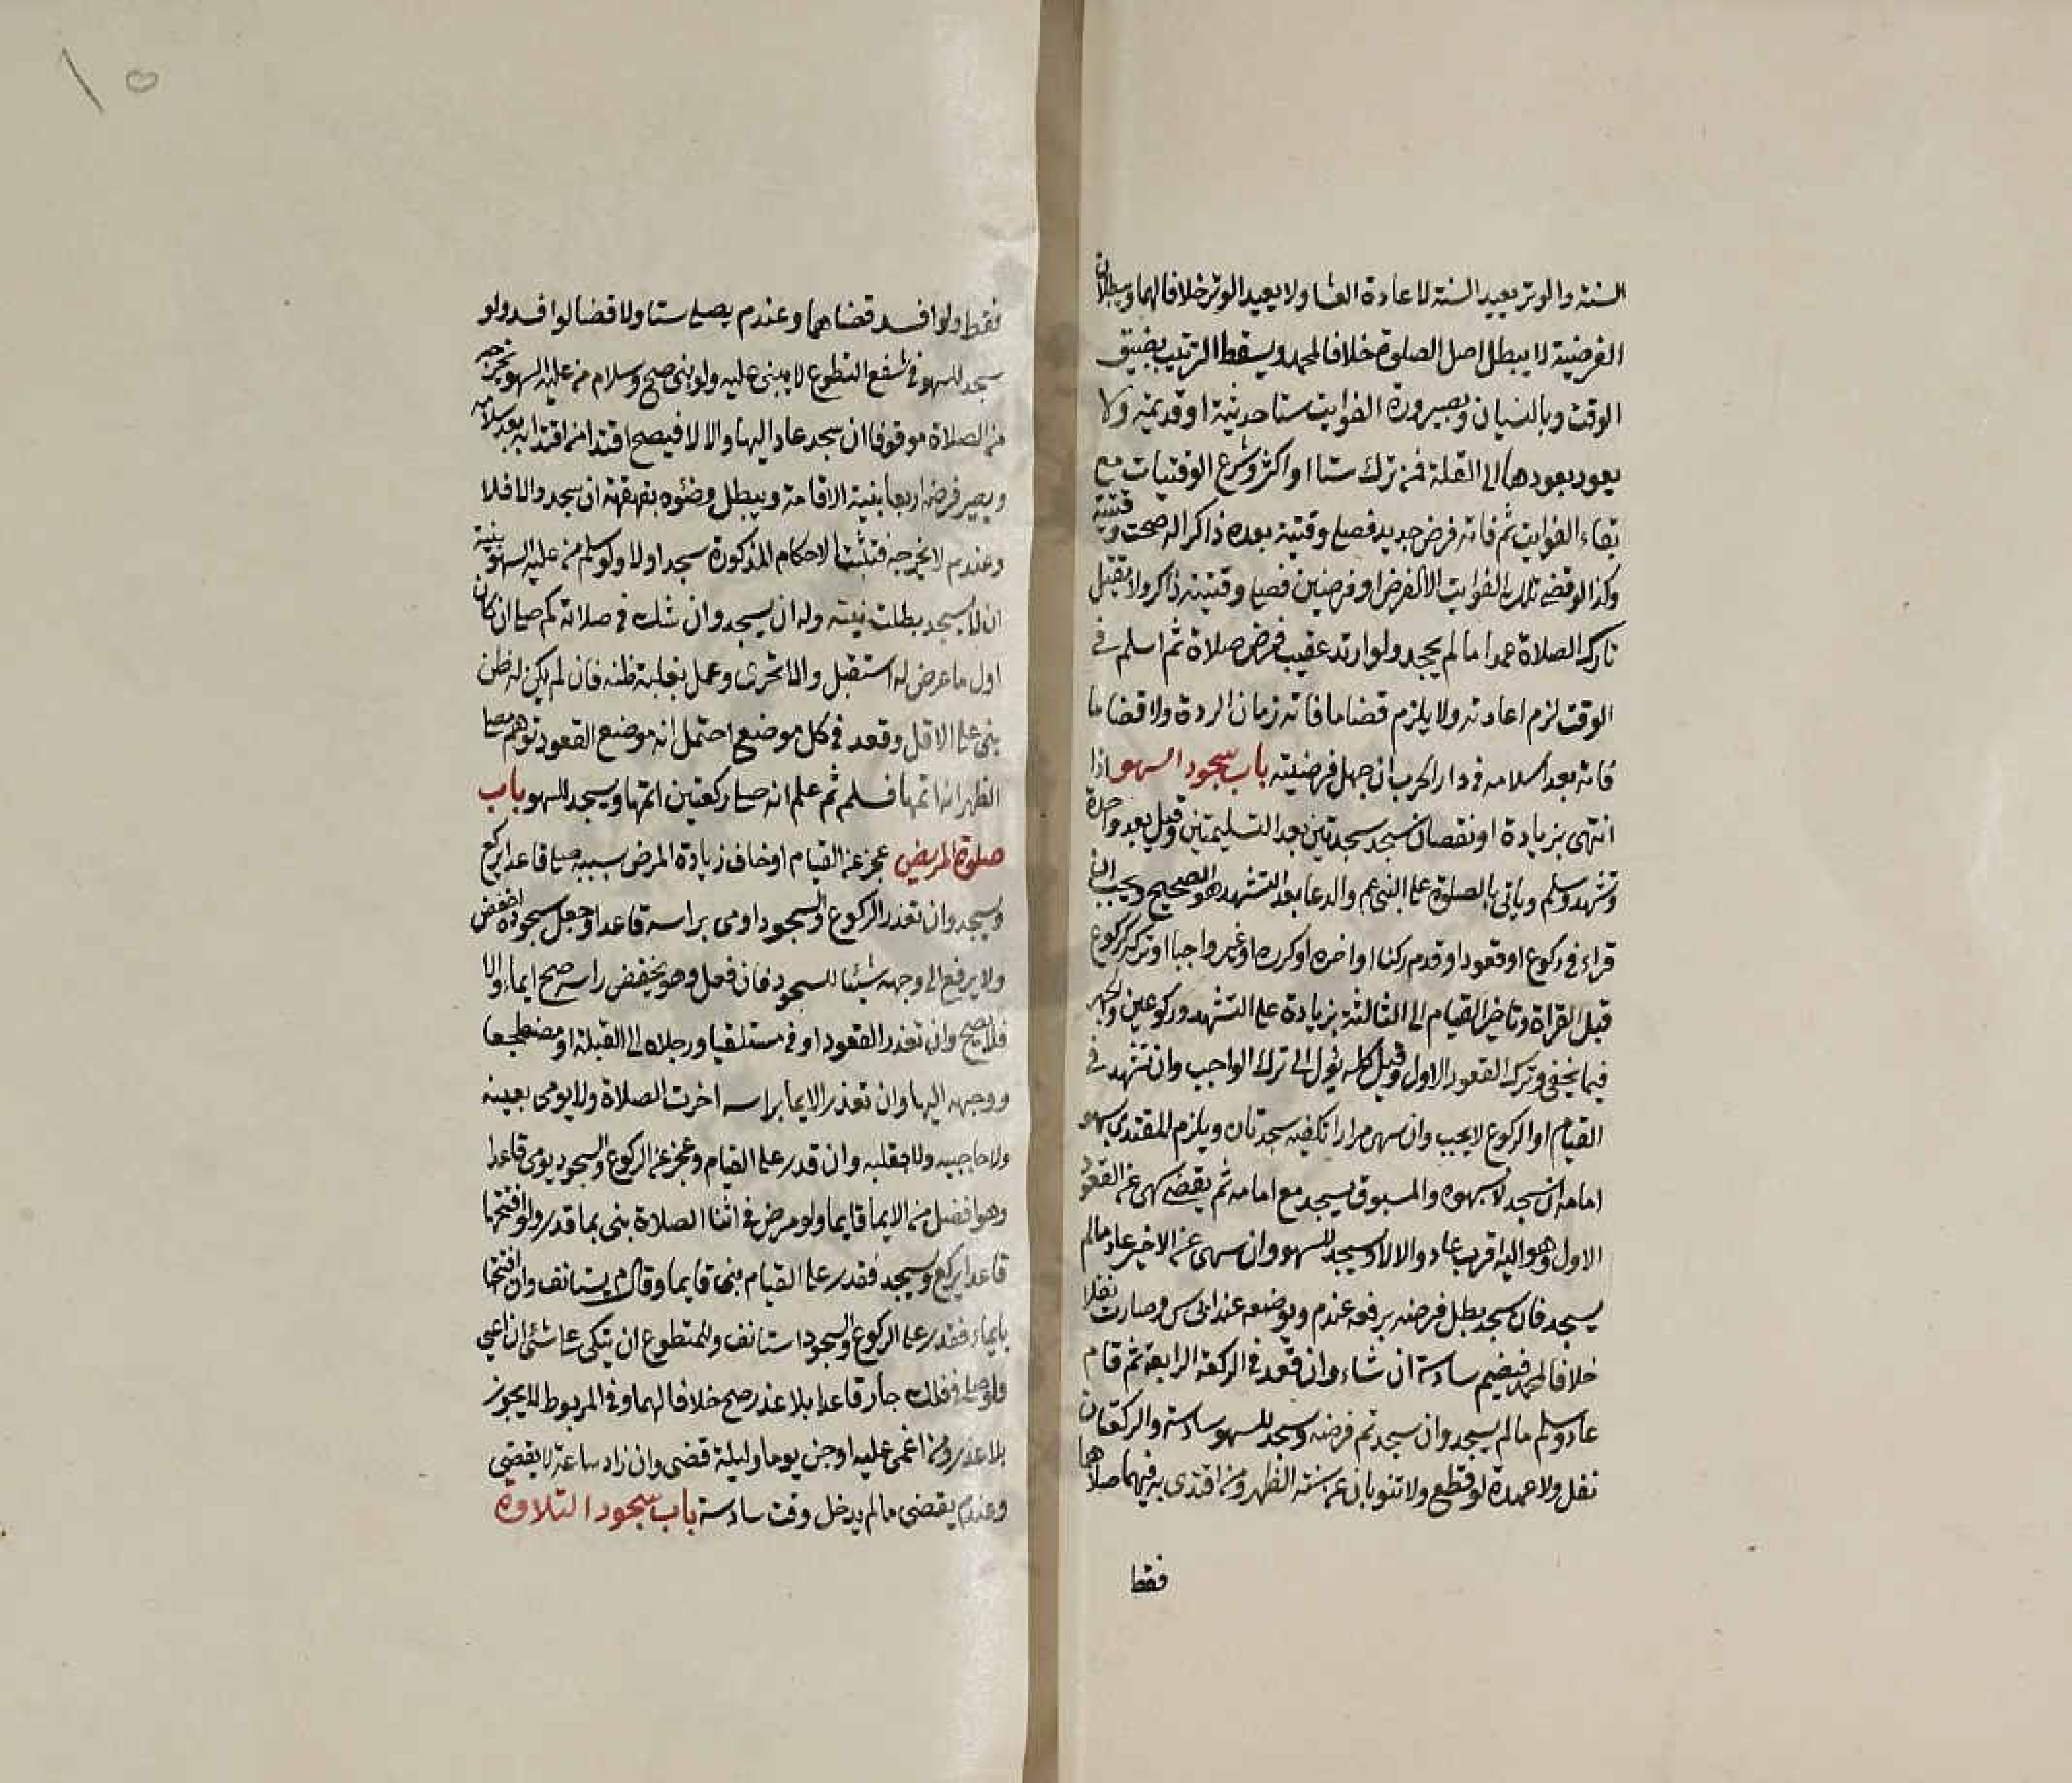 السنة والوتر يعيد السنة لاعادة العشا ولا يعيد الوتر خلافا لهما وبطلان
الفرضية لا يبطل اصل الصلوة خلافا لمحمد ويسقط الترتيب بضيق
الوقت وبالنسيان وبصيرورة الفوايت ستا حديثة او قديمة ولا
يعود بعودها الى القلة فمن ترك ستا او اكثر وشرع الوقتيات مع
بقاء الفوايت ثم فاته فرض جديد فصلى وقتية بعده ذاكرا له صحت وقتيته
وكذا لو قضى تلك الفوايت الا لفرض او فرضين فصلى وقتية ذاكر ولا يقتل
تارك الصلاة عمدا مالم يجحد ولو ارتد عقيب فرض صلاة ثم اسلم في
الوقت لزم اعادته ولا يلزم قضا ما فاته زمان الردة ولا قضا ما
فاته بعد اسلامه في دار الحرب ان جهل فرضيته باب سجود السهو اذا
انتهى بزيادة او نقصان سجد سجدتين بعد التسليمتين وقيل بعد واحدة
وتشهد وسلم وياتى بالصلوة على النبي عم والدعا بعد التشهد هو الصحيح ويجب ان
قراء في ركوع او قعود او قدم ركنا او اخره او كرره او غير واجبا او تركه كركوع
قبل القراة وتاخير القيام الى الثالثة بزيادة على التشهد وركوعين والجهر
فيما يخفى وترك القعود الاول وقيل كله يؤل الى ترك الواجب وان تشهد في
القيام او الركوع لا يجب وان سهى مرارا تكفيه سجدتان ويلزم المقتدى بسهو
امامه ان سجد لا بسهوه والمسبوق يسجد مع امامه ثم يقضى سهى عن القعود
الاول وهو اليه اقرب عاد والا لا ويسجد للسهو وان سهى عن الاخير عاد مالم
يسجد فان سجد بطل فرضه برفعه عندم وبوضعه عند ابى س وصارت نفلا
خلافا لمحمد فيضم سادسة ان شاء وان قعد في الركعة الرابعة ثم قام
عاد وسلم مالم يسجد وان سجد تم فرضه وسجد للسهو سادسة والركعتان
نفل ولا عهدة لو قطع ولا تنوبان عن سنة الظهر ومن اقتدى به فيهما صلاهما
فقط
فقط ولو افسد قضاهما وعندم يصلى ستا ولا قضا لو افسد ولو
سجد للسهو في شفع التطوع لا يبنى عليه ولو بنى صح وسلام من عليه السهو يخرجه
من الصلاة موقوفا ان سجد عاد اليها والا لا فيصح اقتدا من اقتدا به بعد سلامه
ويصير فرضه اربعا بنية الاقامة ويبطل وضوءه بقهقهة ان سجد والا فلا
وعندم لا يخرجه فتثبت الاحكام المذكورة سجد اولا ولو سلم من عليه السهو بنية
ان لا يسجد بطلت نيته وله ان يسجد وان شك في صلاته كم صلى ان كان
اول ما عرض له استقبل والا تحرى وعمل بغلبة ظنه فان لم يكن له ظن
بنى على الاقل وقعد في كل موضع احتمل انه موضع القعود توهم مصلى
الظهر انه اتمها فسلم ثم علم انه صلى ركعتين اتمها ويسجد للسهو باب
صلوة المريض عجز عن القيام او خاف زيادة المرض بسببه صلى قاعدا يركع
ويسجد وان تعذر الركوع والسجود اومى براسه قاعدا وجعل سجوده اخفض
ولا يرفع الى وجهه شيئا للسجود فان فعل وهو يخفض راسه صح ايماء والا
فلا يصح وان تعذر القعود اومى مستلقيا ورجلاه الى القبلة او مضطجعا
ووجهه اليها وان تعذر الايما براسه اخرت الصلاة ولا يومى بعينه
ولا حاجبيه ولا بقلبه وان قدر على القيام وعجز عن الركوع والسجود يومى قاعدا
وهو افضل من الايما قايما ولو مرض في اثنا الصلاة بنى بما قدر ولو افتتحها
قاعدا يركع ويسجد فقدر على القيام بنى قايما وقال م يستانف وان افتتحها
بايماء فقدر على الركوع والسجود استانف وللمتطوع ان يتكى على شئ ان اعيى
ولو صلى في فلك جار قاعدا بلا عذر صح خلافا لهما وفي المربوط لا يجوز
بلا عذر ومن اغمى عليه او جن يوما وليلة قضى وان زاد ساعة لا يقضى
وعندم يقضى مالم يدخل وقت سادسة باب سجود التلاوة